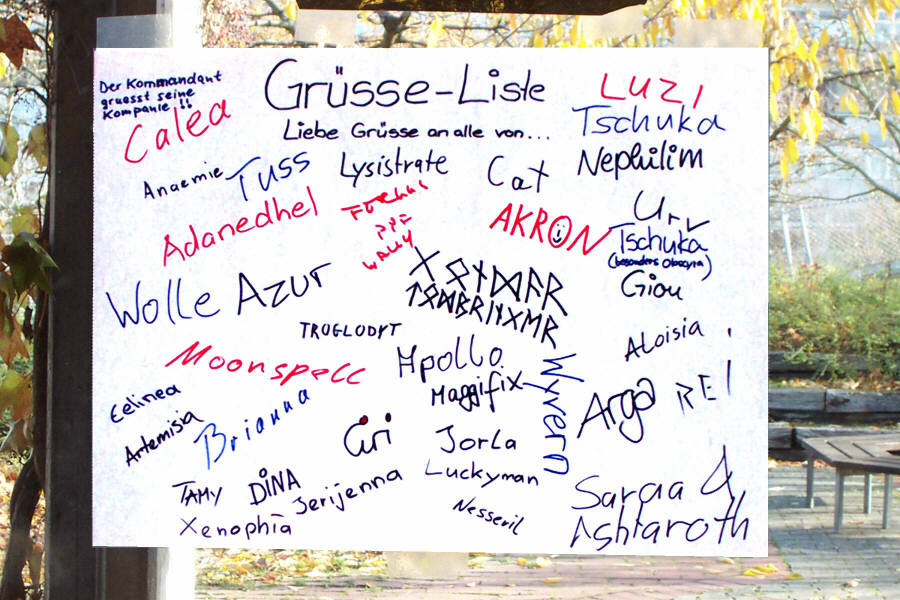 Der Kommandant
gruesst seine
Kompanie !!
Grüsse-Liste
Liebe Grüsse an alle von...
LUZI
Calea
Tschuka
Anaemie
Tuss
Lysistrate
Cat
Nephilim
Adanedhel
WALLY
AKRON
Urv
Tschuka
(besonders
Giou
Wolle
Azur
ᚷᛟᚾᛞᚨᚱ
TROGLODYT
Aloisia
Moonspell
Apollo
Maggifix
Wyvern
Arga
REI
Eelinea
Artemisia
Brianna
Ciri
Jorla
Luckyman
TAMY
DINA
Jerijenna
Xenophia
Nesseril
Saraa &
Ashtaroth